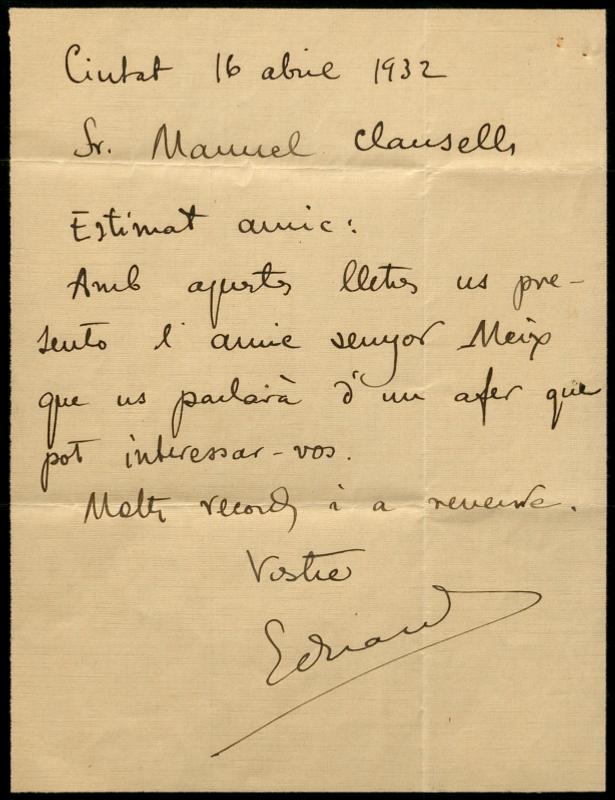 Ciutat 16 abril 1932
Sr. Manuel Clausells
Estimat amic:
Amb aquestes lletres us pre-
sento l'amic senyor Meix
que us parlarà d'un afer que
pot interessar-vos.
Molts records i a reveure.
Vostre